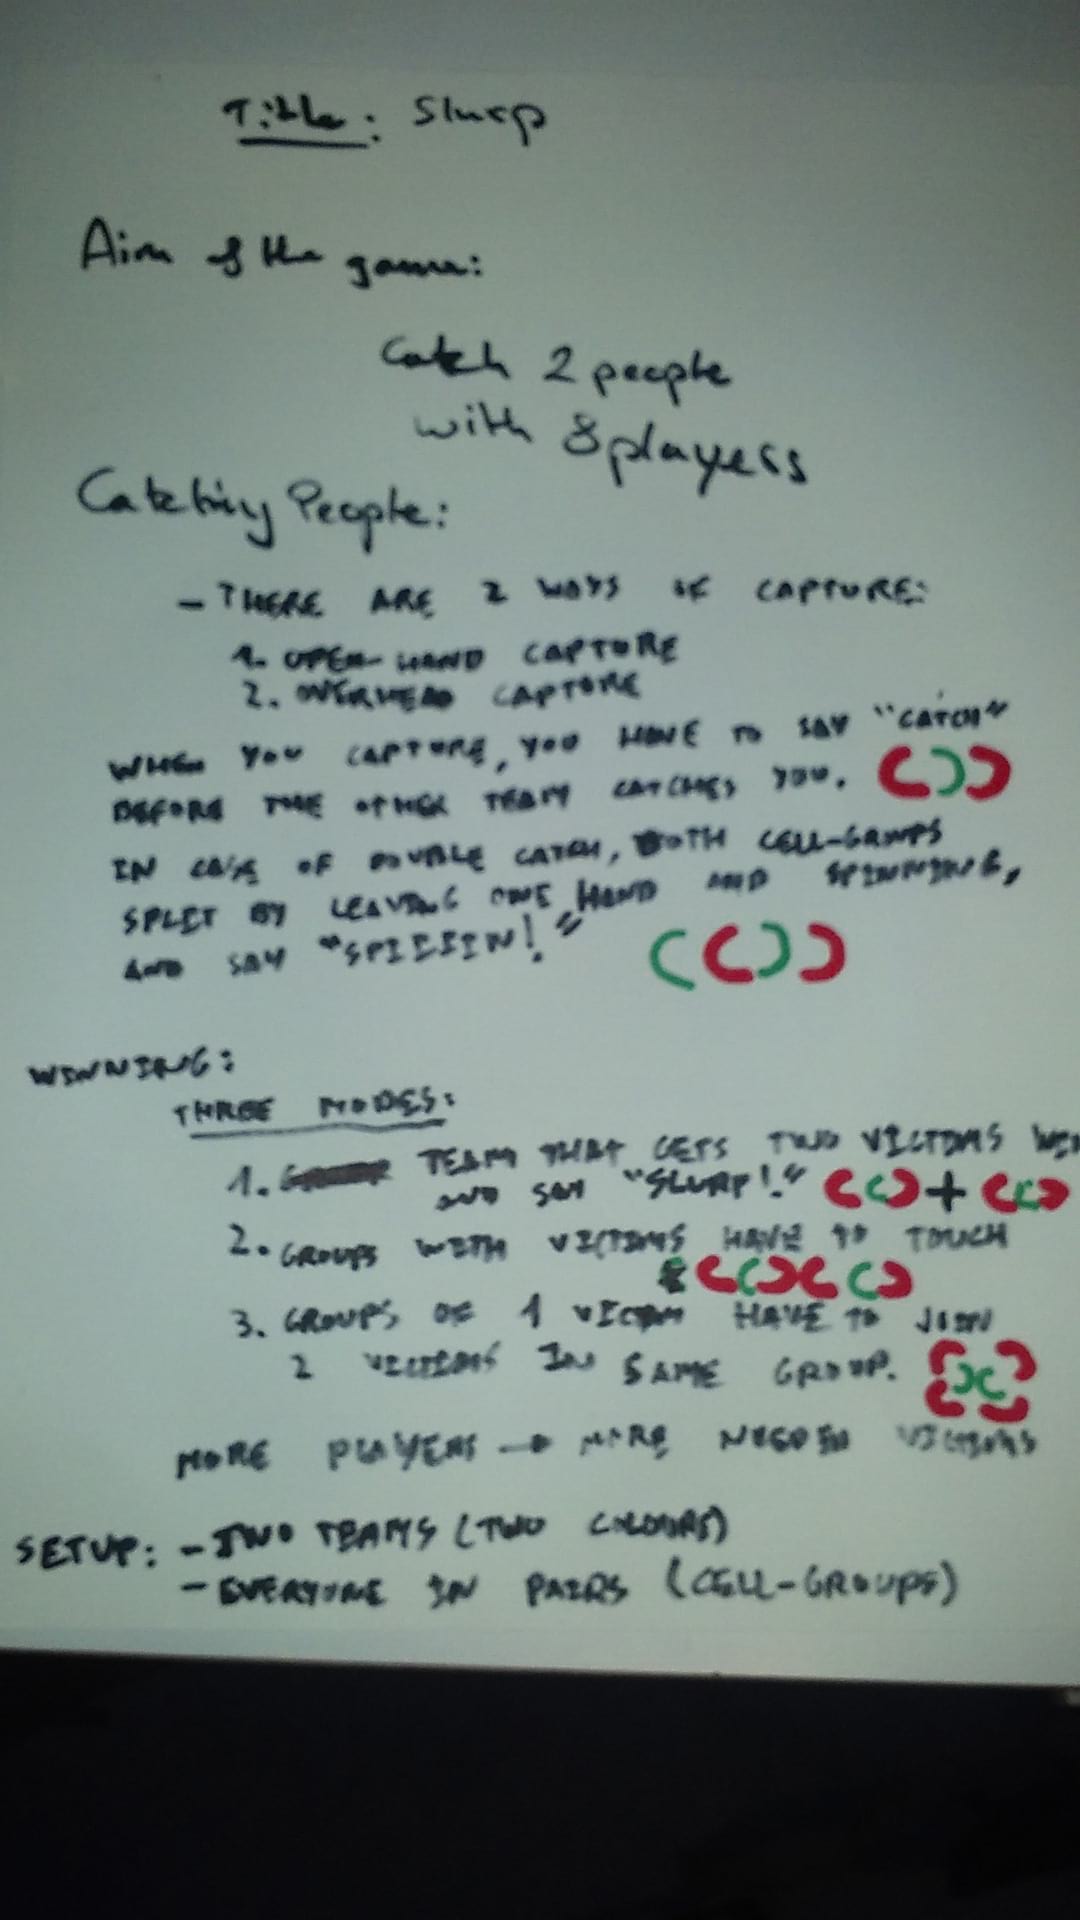 Title: Slurp
Aim of the game:
Catch 2 people
with 8 players
Catching People:
- THERE ARE 2 WAYS OF CAPTURE:
1. OPEN-HAND CAPTURE
2. OVERHEAD CAPTURE
WHEN YOU CAPTURE, YOU HAVE TO SAY "CATCH"
BEFORE THE OTHER TEAM CATCHES YOU.
IN CASE OF DOUBLE CATCH, BOTH CELL-GROUPS
SPLIT BY LEAVING ONE HAND AND SPINNING,
AND SAY "SPIIIIN!"
WINNING:
THREE MODES:
1. TEAM THAT GETS TWO VICTIMS
AND SAY "SLURP!" +
2. GROUPS WITH VICTIMS HAVE TO TOUCH
3. GROUPS OF 1 VICTIM HAVE TO JOIN
2 VICTIMS IN SAME GROUP.
MORE PLAYERS → MORE VICTIMS
SETUP: - TWO TEAMS (TWO COLOURS)
- EVERYONE IN PAIRS (CELL-GROUPS)